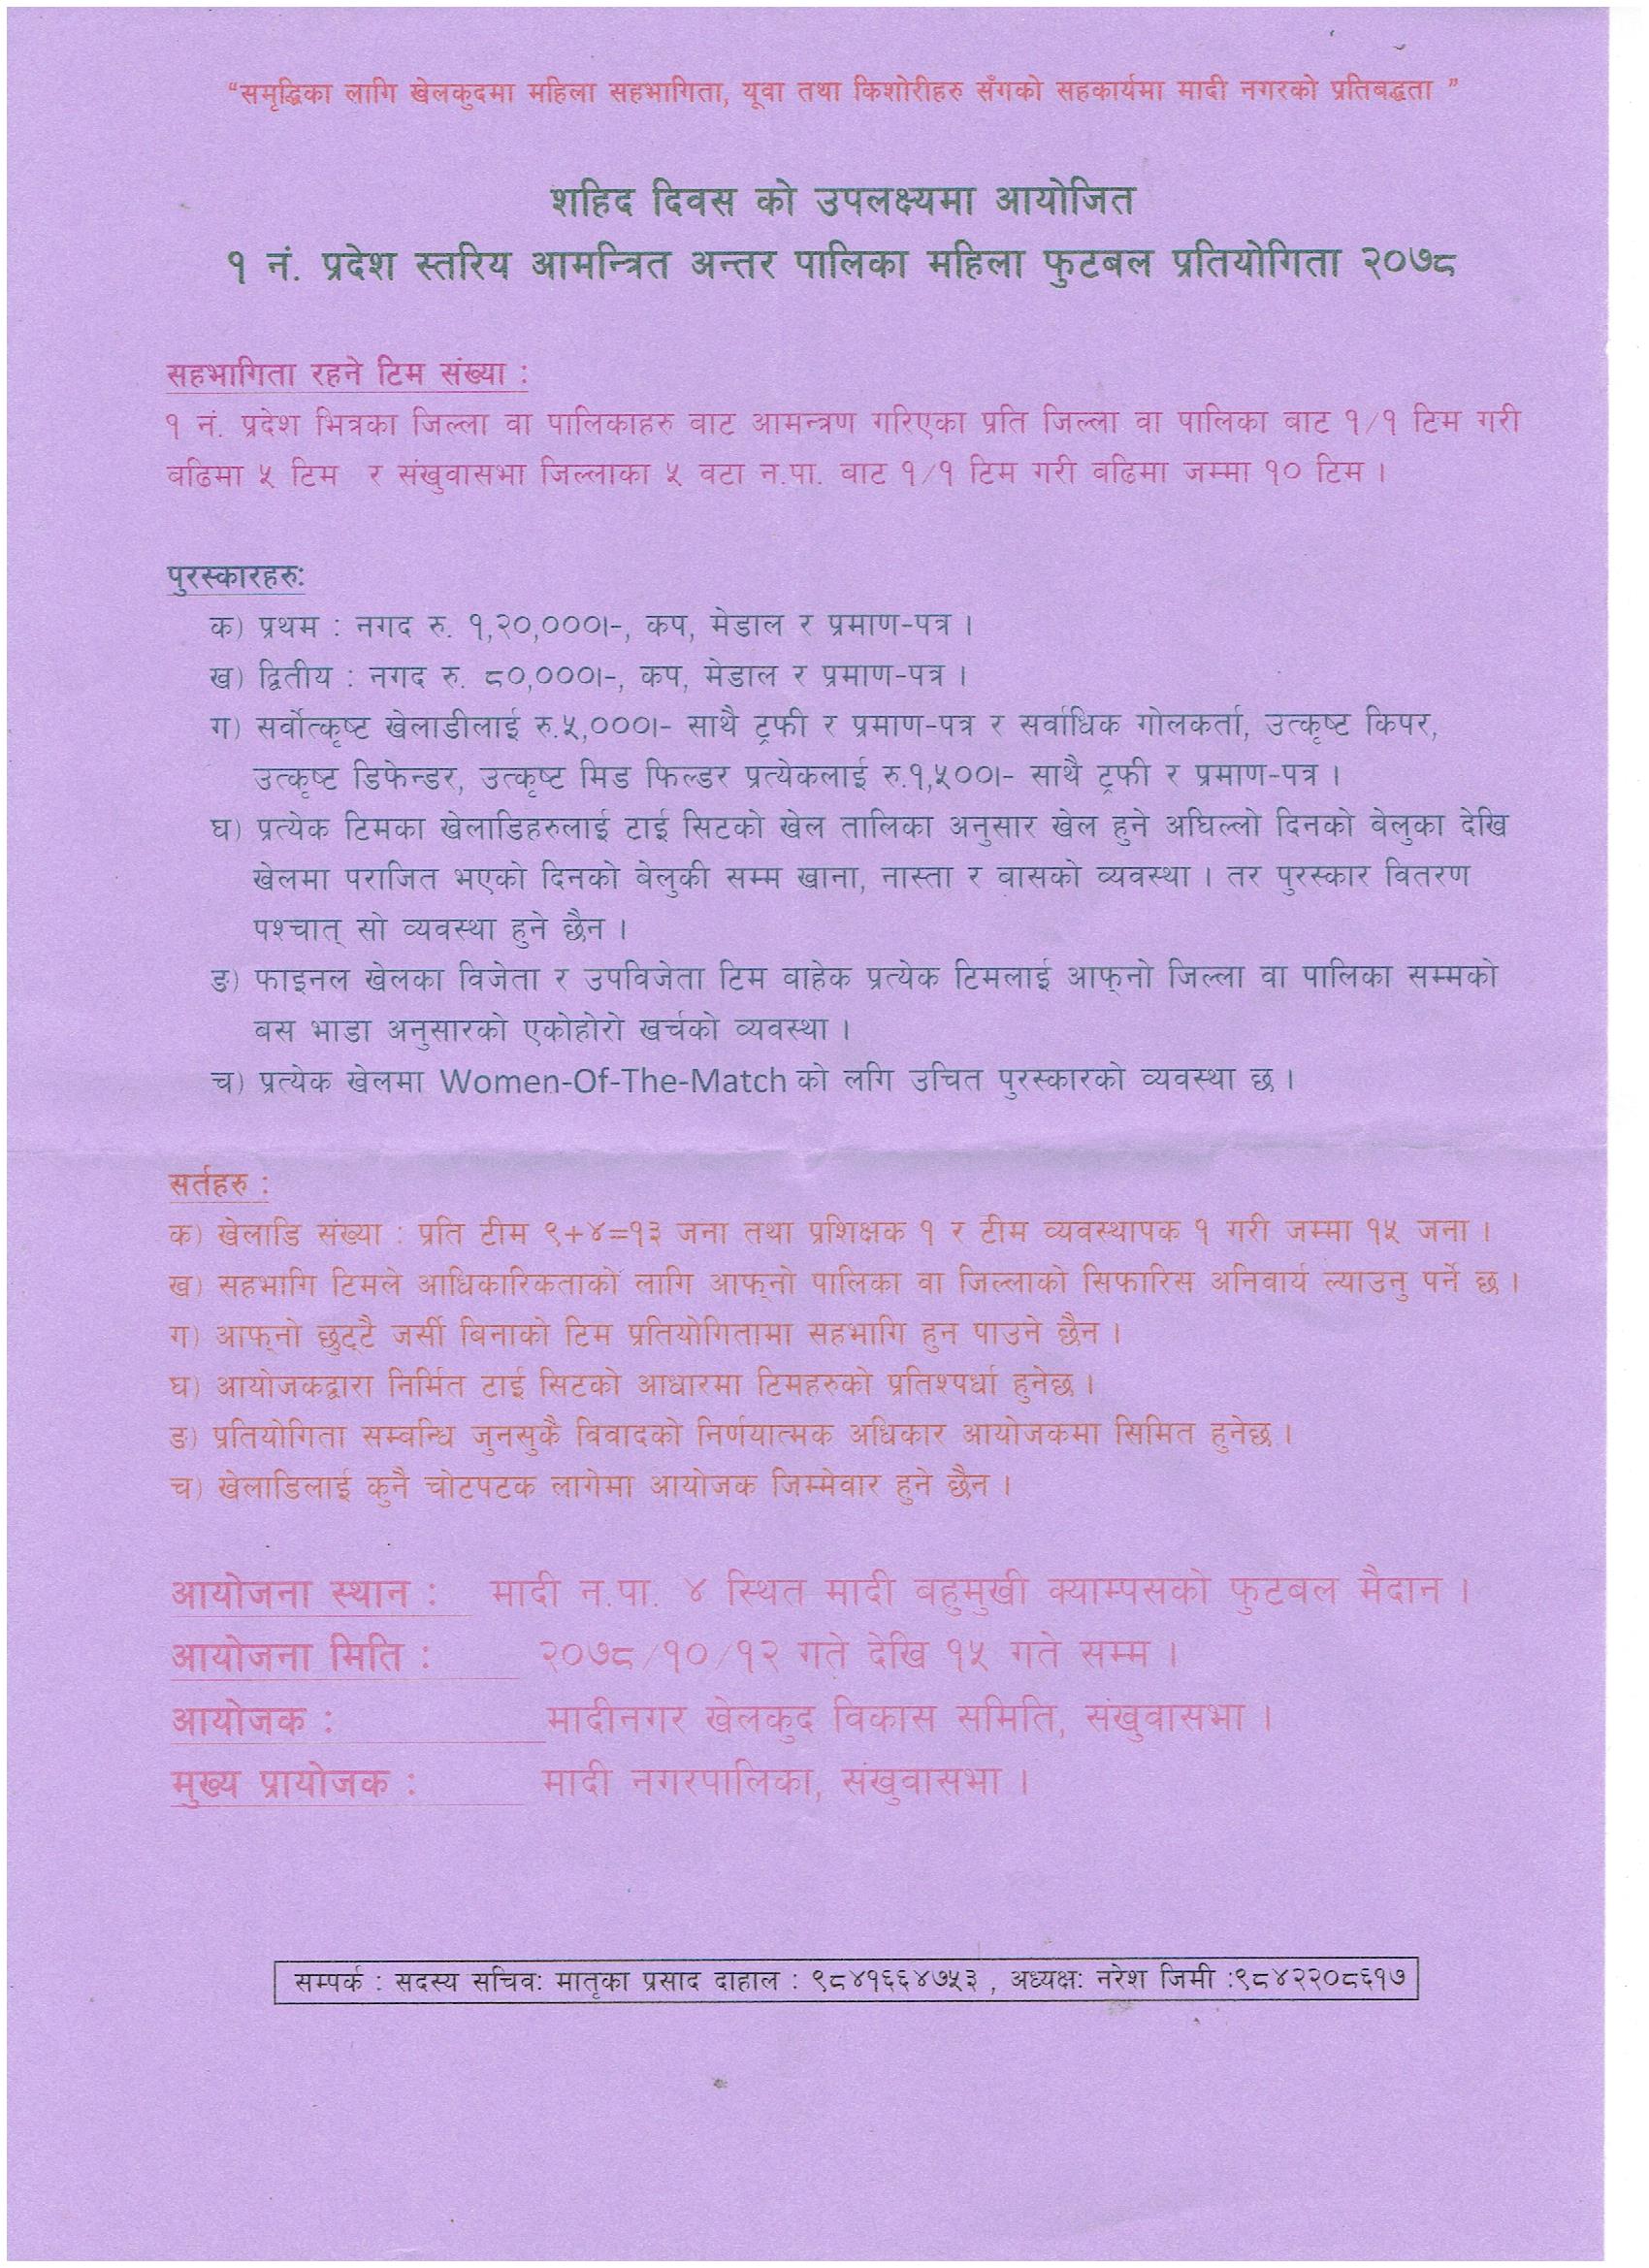 “समृद्धिका लागि खेलकुदमा महिला सहभागिता, यूवा तथा किशोरीहरु सँगको सहकार्यमा मादी नगरको प्रतिबद्धता ”
शहिद दिवस को उपलक्ष्यमा आयोजित
१ नं. प्रदेश स्तरिय आमन्त्रित अन्तर पालिका महिला फुटबल प्रतियोगिता २०७८
सहभागिता रहने टिम संख्या :
१ नं. प्रदेश भित्रका जिल्ला वा पालिकाहरु बाट आमन्त्रण गरिएका प्रति जिल्ला वा पालिका बाट १/१ टिम गरी
बढिमा ५ टिम र संखुवासभा जिल्लाका ५ वटा न.पा. बाट १/१ टिम गरी बढिमा जम्मा १० टिम ।
पुरस्कारहरु:
क) प्रथम : नगद रु. १,२०,०००।-, कप, मेडाल र प्रमाण-पत्र ।
ख) द्वितीय : नगद रु. ८०,०००।-, कप, मेडाल र प्रमाण-पत्र ।
ग) सर्वोत्कृष्ट खेलाडीलाई रु.५,०००।- साथै ट्रफी र प्रमाण-पत्र र सर्वाधिक गोलकर्ता, उत्कृष्ट किपर,
उत्कृष्ट डिफेन्डर, उत्कृष्ट मिड फिल्डर प्रत्येकलाई रु.१,५००।- साथै ट्रफी र प्रमाण-पत्र ।
घ) प्रत्येक टिमका खेलाडिहरुलाई टाई सिटको खेल तालिका अनुसार खेल हुने अघिल्लो दिनको बेलुका देखि
खेलमा पराजित भएको दिनको बेलुकी सम्म खाना, नास्ता र बासको व्यवस्था । तर पुरस्कार वितरण
पश्चात् सो व्यवस्था हुने छैन ।
ङ) फाइनल खेलका विजेता र उपविजेता टिम बाहेक प्रत्येक टिमलाई आफ्नो जिल्ला वा पालिका सम्मको
बस भाडा अनुसारको एकोहोरो खर्चको व्यवस्था ।
च) प्रत्येक खेलमा Women-Of-The-Match को लगि उचित पुरस्कारको व्यवस्था छ ।
सर्तहरु :
क) खेलाडि संख्या : प्रति टीम ९+४=१३ जना तथा प्रशिक्षक १ र टीम व्यवस्थापक १ गरी जम्मा १५ जना ।
ख) सहभागि टिमले आधिकारिकताको लागि आफ्नो पालिका वा जिल्लाको सिफारिस अनिवार्य ल्याउनु पर्ने छ ।
ग) आफ्नो छुट्टै जर्सी बिनाको टिम प्रतियोगितामा सहभागि हुन पाउने छैन ।
घ) आयोजकद्वारा निर्मित टाई सिटको आधारमा टिमहरुको प्रतिश्पर्धा हुनेछ ।
ङ) प्रतियोगिता सम्बन्धि जुनसुकै विवादको निर्णयात्मक अधिकार आयोजकमा सिमित हुनेछ ।
च) खेलाडिलाई कुनै चोटपटक लागेमा आयोजक जिम्मेवार हुने छैन ।
आयोजना स्थान : मादी न.पा. ४ स्थित मादी बहुमुखी क्याम्पसको फुटबल मैदान ।
आयोजना मिति : २०७८/१०/१२ गते देखि १५ गते सम्म ।
आयोजक : मादीनगर खेलकुद विकास समिति, संखुवासभा ।
मुख्य प्रायोजक : मादी नगरपालिका, संखुवासभा ।
सम्पर्क : सदस्य सचिव: मातृका प्रसाद दाहाल : ९८४१६६४७५३ , अध्यक्ष: नरेश जिमी :९८४२२०८६१७